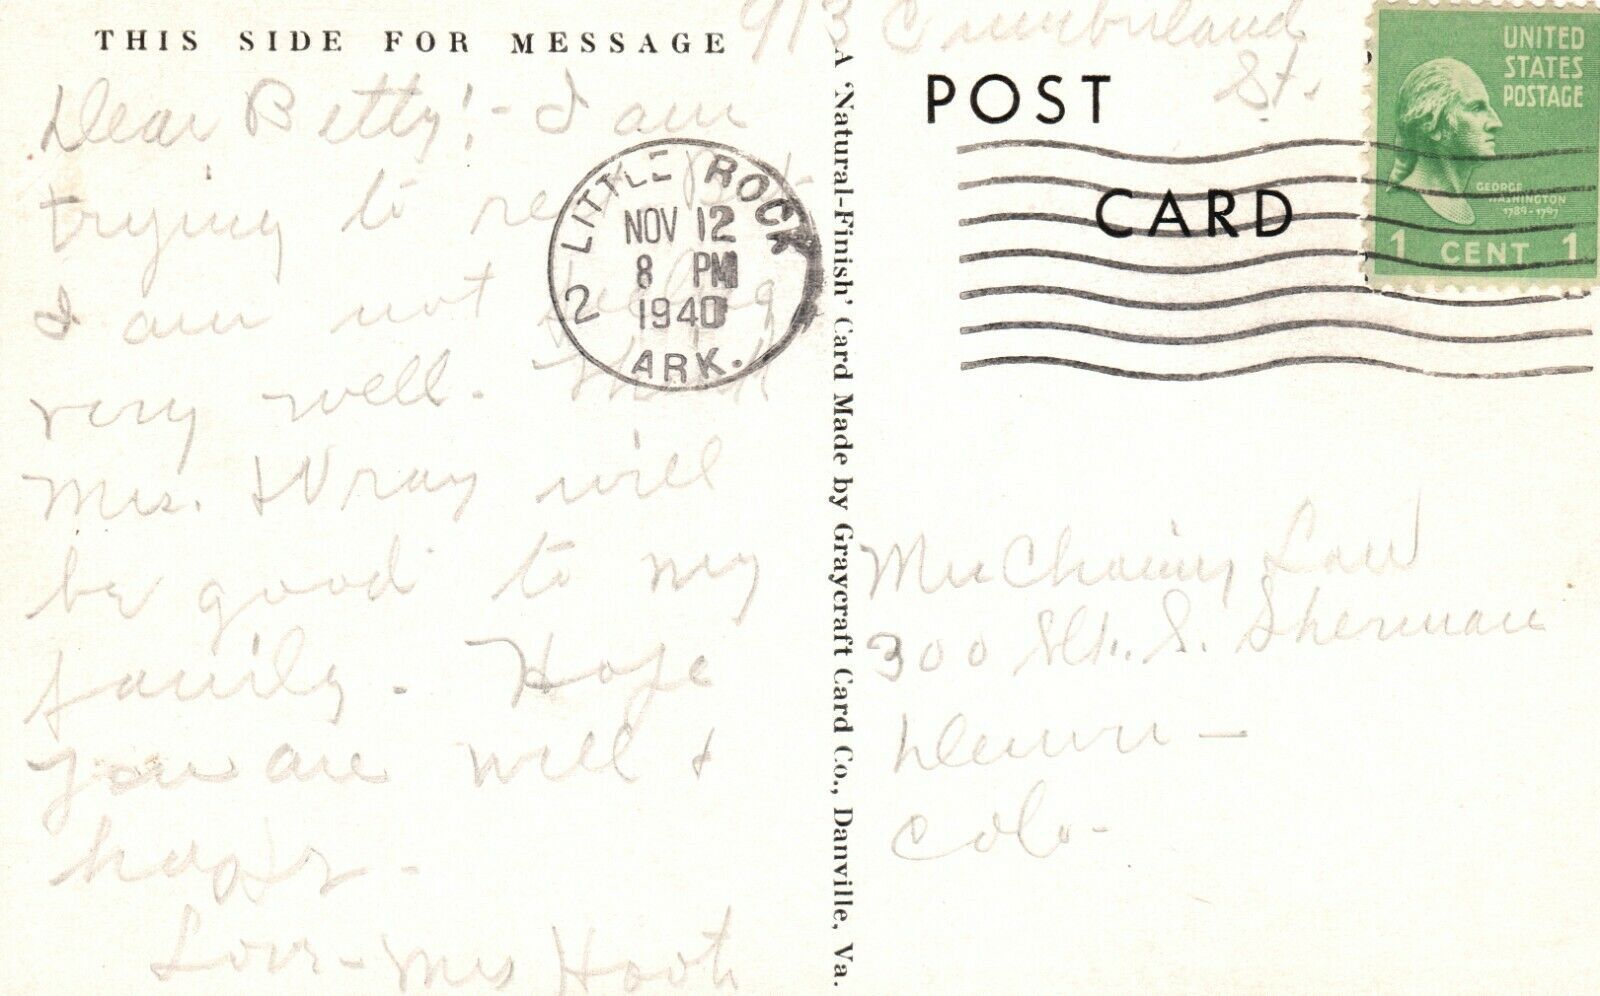 THIS SIDE FOR MESSAGE
913 Cumberland
St.
Dear Betty! - I am
trying to
I am not feeling
very well.
Mrs. Wray will
be good to my
family. Hope
you are well &
happy.
Love - Mrs Hoot
LITTLE ROCK
NOV 12
8 PM
1940
2
ARK.
A 'Natural-Finish' Card Made by Graycraft Card Co., Danville, Va.
POST
CARD
UNITED
STATES
POSTAGE
GEORGE
WASHINGTON
1789-1797
1 CENT 1
Law
300 S. Sherman
Denver -
Colo -